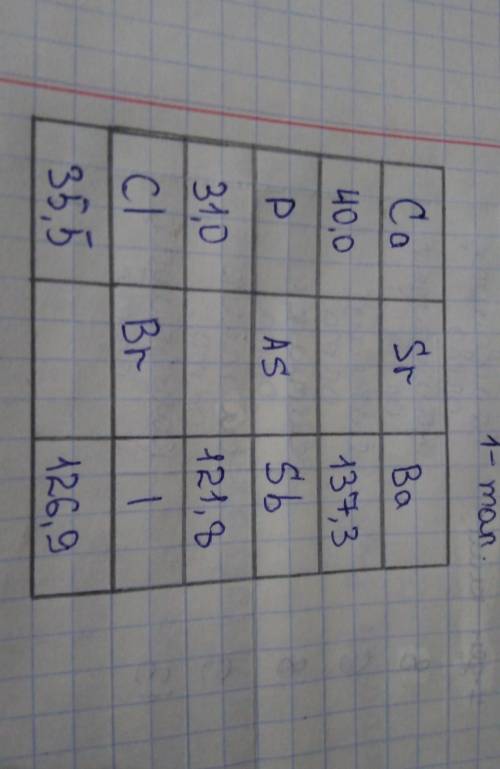 1- тап.
Ca Sr Ba
40,0 137,3
P As Sb
31,0 121,8
Cl Br I
35,5 126,9